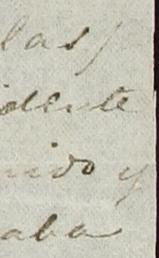 las)
idente
nido y
aba